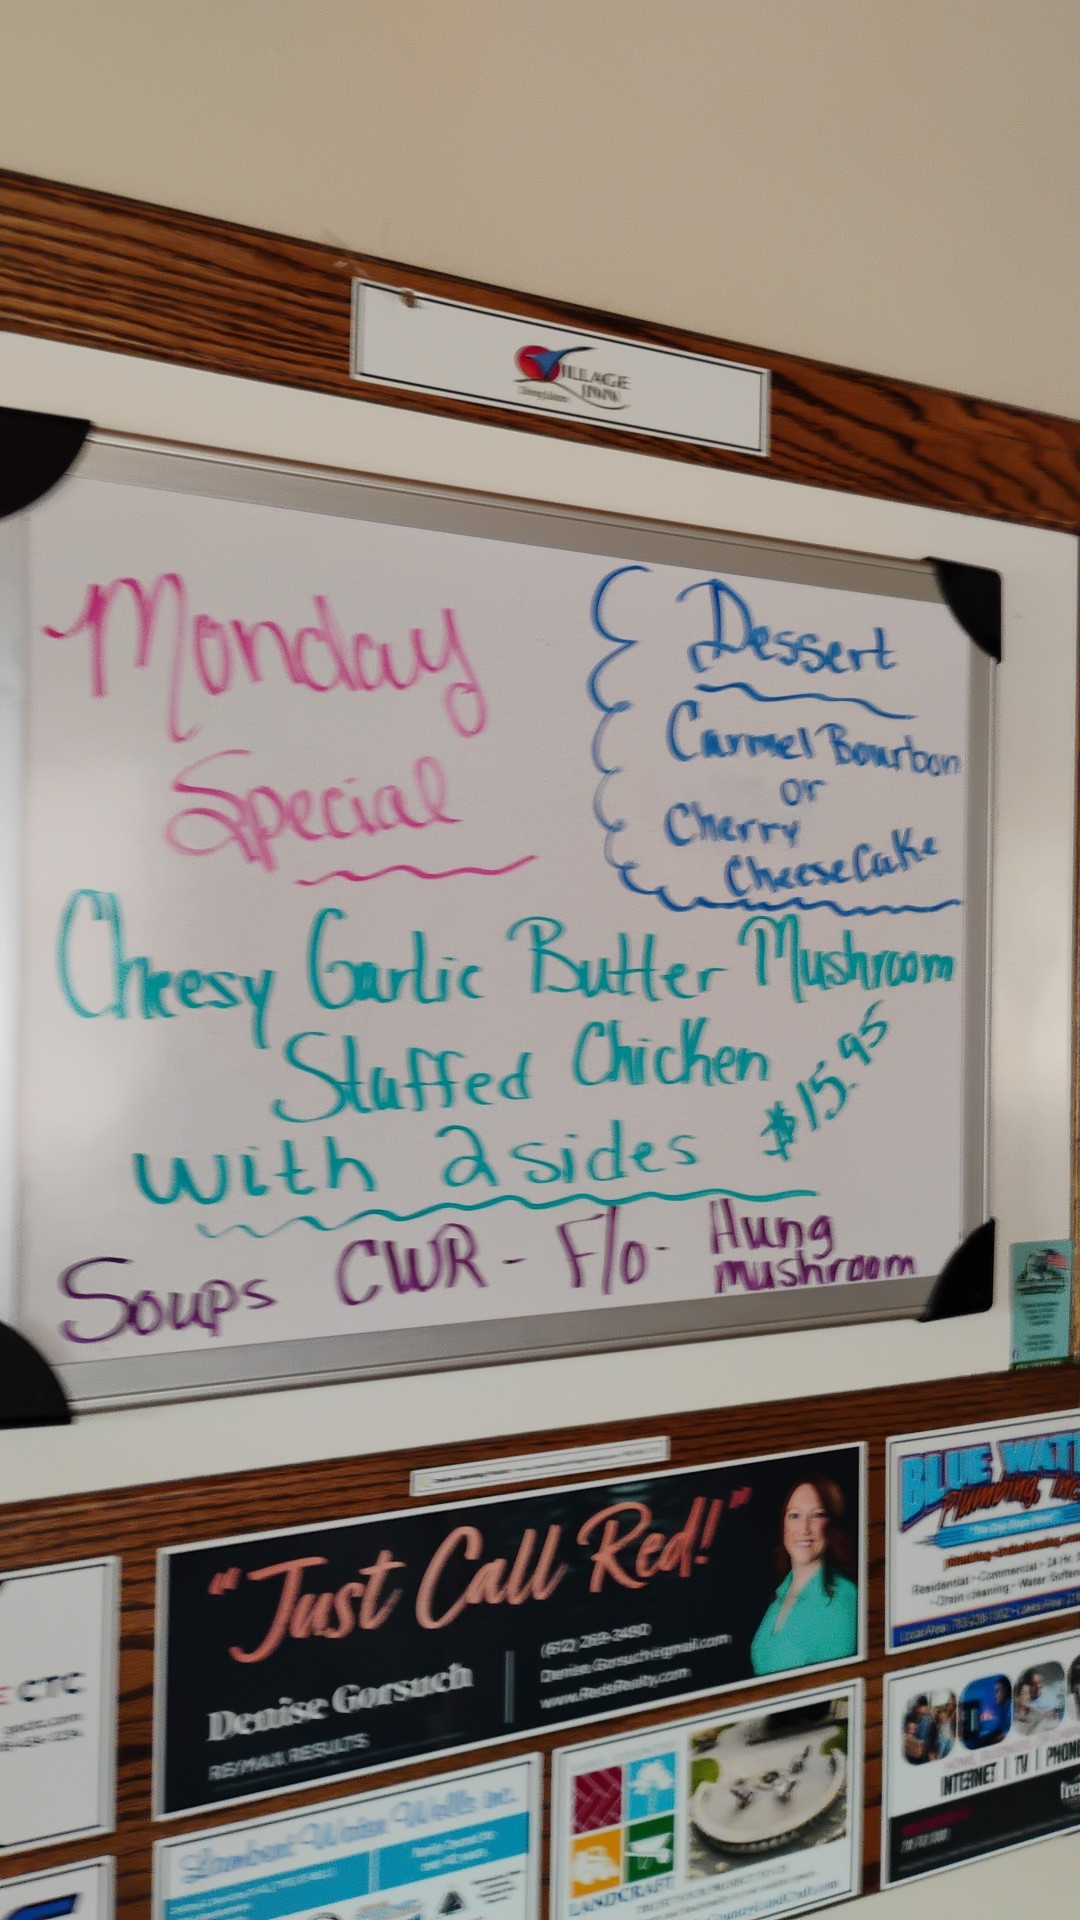 VILLAGE
INN
Monday
Special
Dessert
Carmel Bourbon
or
Cherry
CheeseCake
Cheesy Garlic Butter Mushroom
Stuffed Chicken
$15.95
with 2 sides
Soups CWR - F/o - Hung
mushroom
"Just Call Red!"
Denise Gorsuch
RE/MAX RESULTS
(612) 269-2490
DeniseGorsuch@gmail.com
www.RedsRealty.com
BLUE WAT
Plumbing, Inc
Residential • Commercial • 24 Hr.
• Drain cleaning • Water Soften
CTC
Lambert Water Wells Inc.
LANDCRAFT
INTERNET | TV | PHON